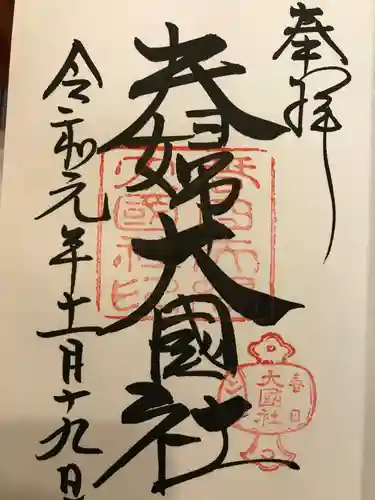 奉拝
春日
夫婦大國社
令和元年十一月十九日
春日
大國社